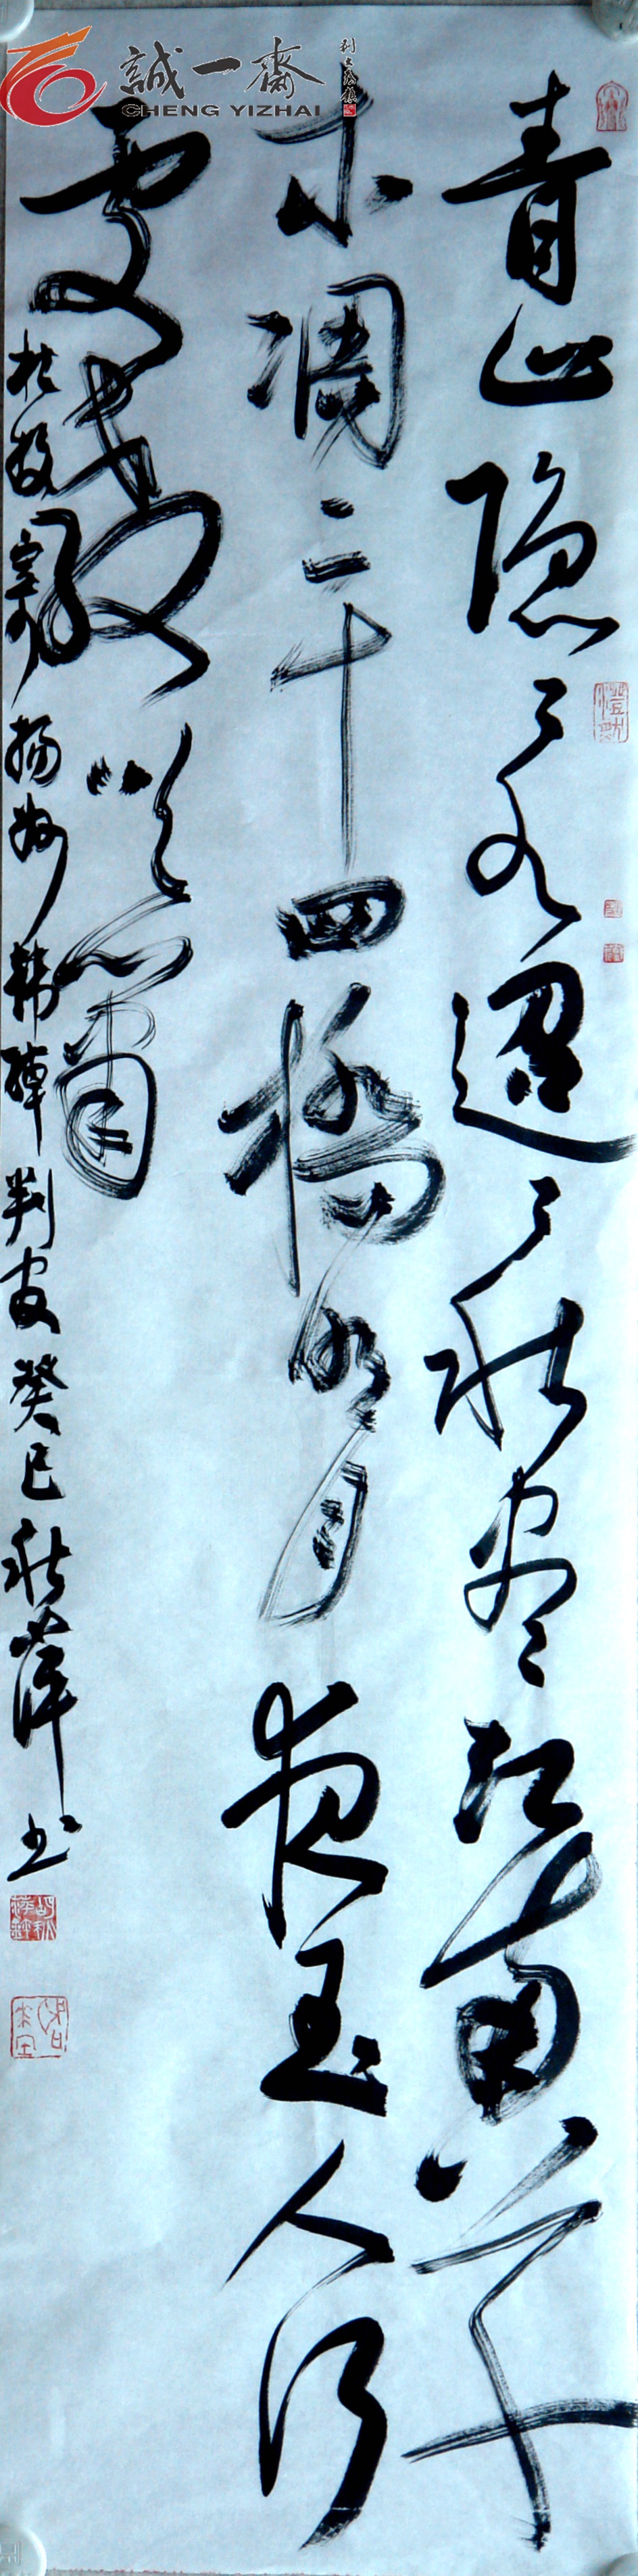 誠一齋
CHENG YIZHAI
青山隐々水迢々秋尽江南草
木凋二十四橋明月夜玉人何
處教吹箫
杜牧寄扬州韩绰判官癸巳秋萍书